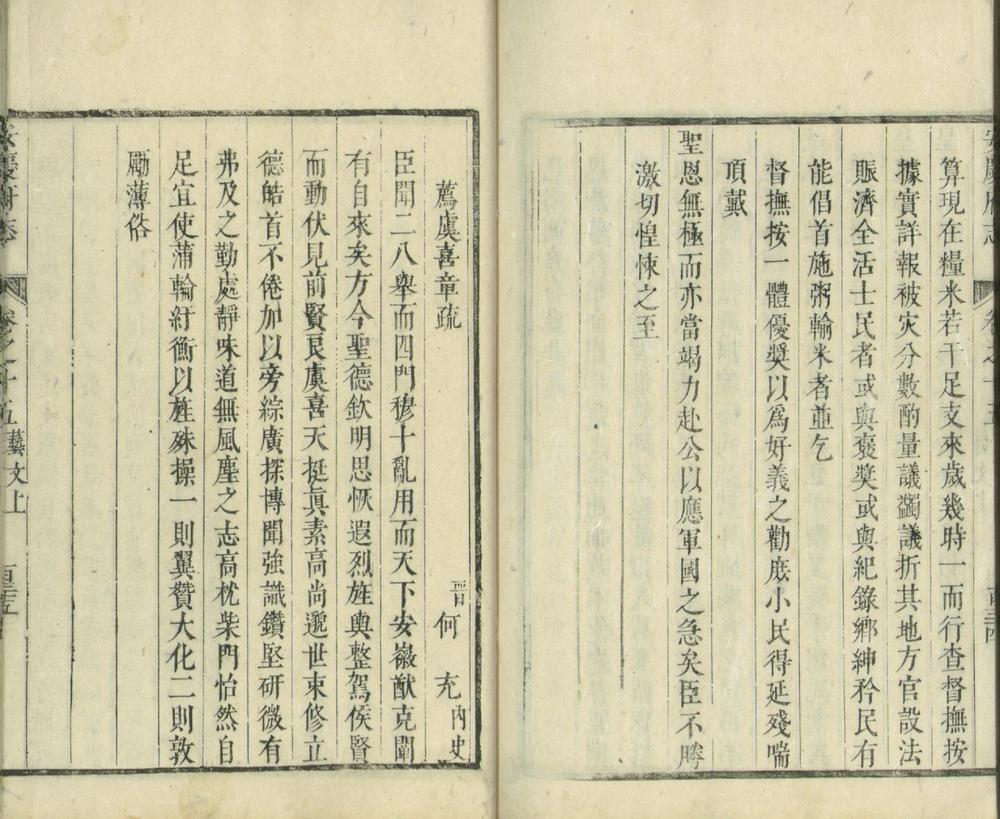 安慶府志 卷之十五
算現在糧米若干足支來歲幾時一而行查督撫按
據實詳報被灾分數酌量議蠲議折其地方官設法
賑濟全活士民者或與褒獎或與紀錄鄉紳矜民有
能倡首施粥輸米者並乞
督撫按一體優獎以爲好義之勸庶小民得延殘喘
頂戴
聖恩無極而亦當竭力赴公以應軍國之急矣臣不勝
激切惶悚之至
薦虞喜章疏
晉何充內史
臣聞二八舉而四門穆十亂用而天下安徽猷克闡
有自來矣方今聖德欽明思恢遐烈旌輿整駕俟賢
而動伏見前賢良虞喜天挺眞素高尚邈世束修立
德皓首不倦加以旁綜廣探博聞強識鑽堅研微有
弗及之勤處靜味道無風塵之志高枕柴門怡然自
足宜使蒲輪紆衡以旌殊操一則翼贊大化二則敦
勵薄俗
安慶府志 卷之十五 藝文上